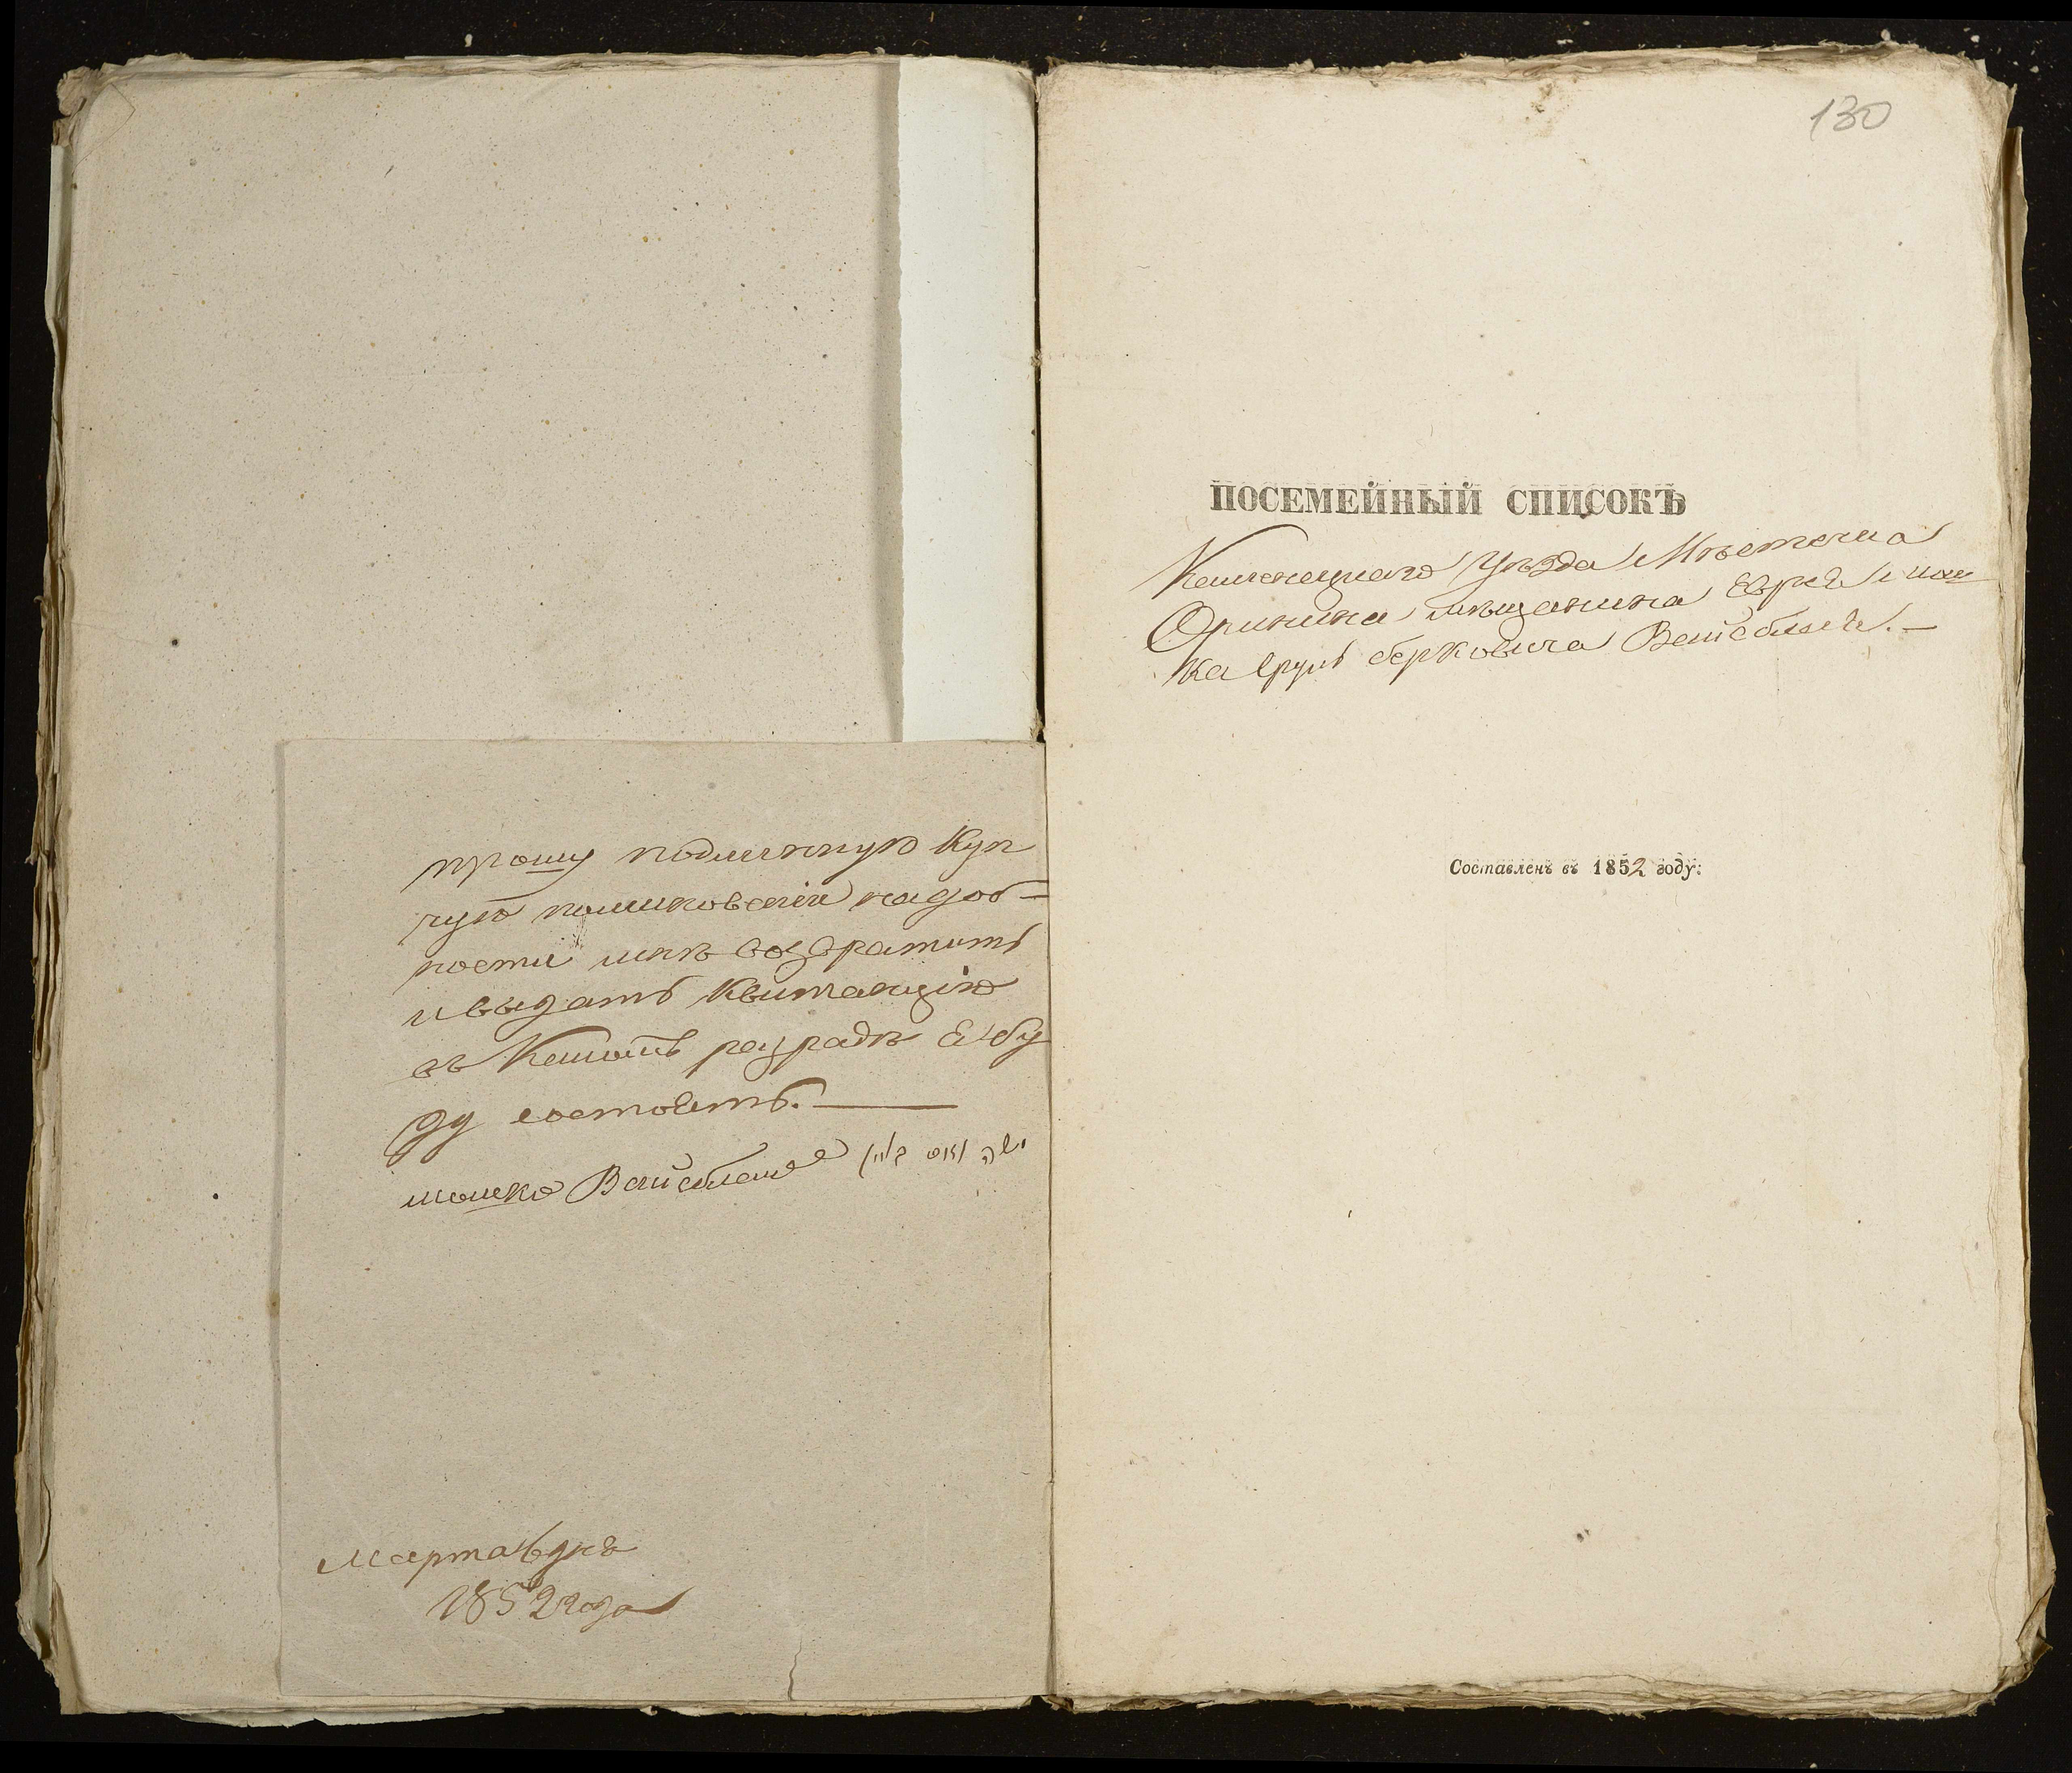 прошу подлинную куп
чую поминовеніи надоб=
ности мнѣ возвратить
и выдать квитанцію
въ какомъ разрадѣ я бу
ду состоять.
мошко Вайсблат
Марта дня
1852 года
130
ПОСЕМЕЙНЫЙ СПИСОКЪ
Каменецкаго Уѣзда Мѣстечка
Оринина мѣщанина Еврея мош
ка Сруль берковича Вайсблат.
Составленъ въ 1852 году: